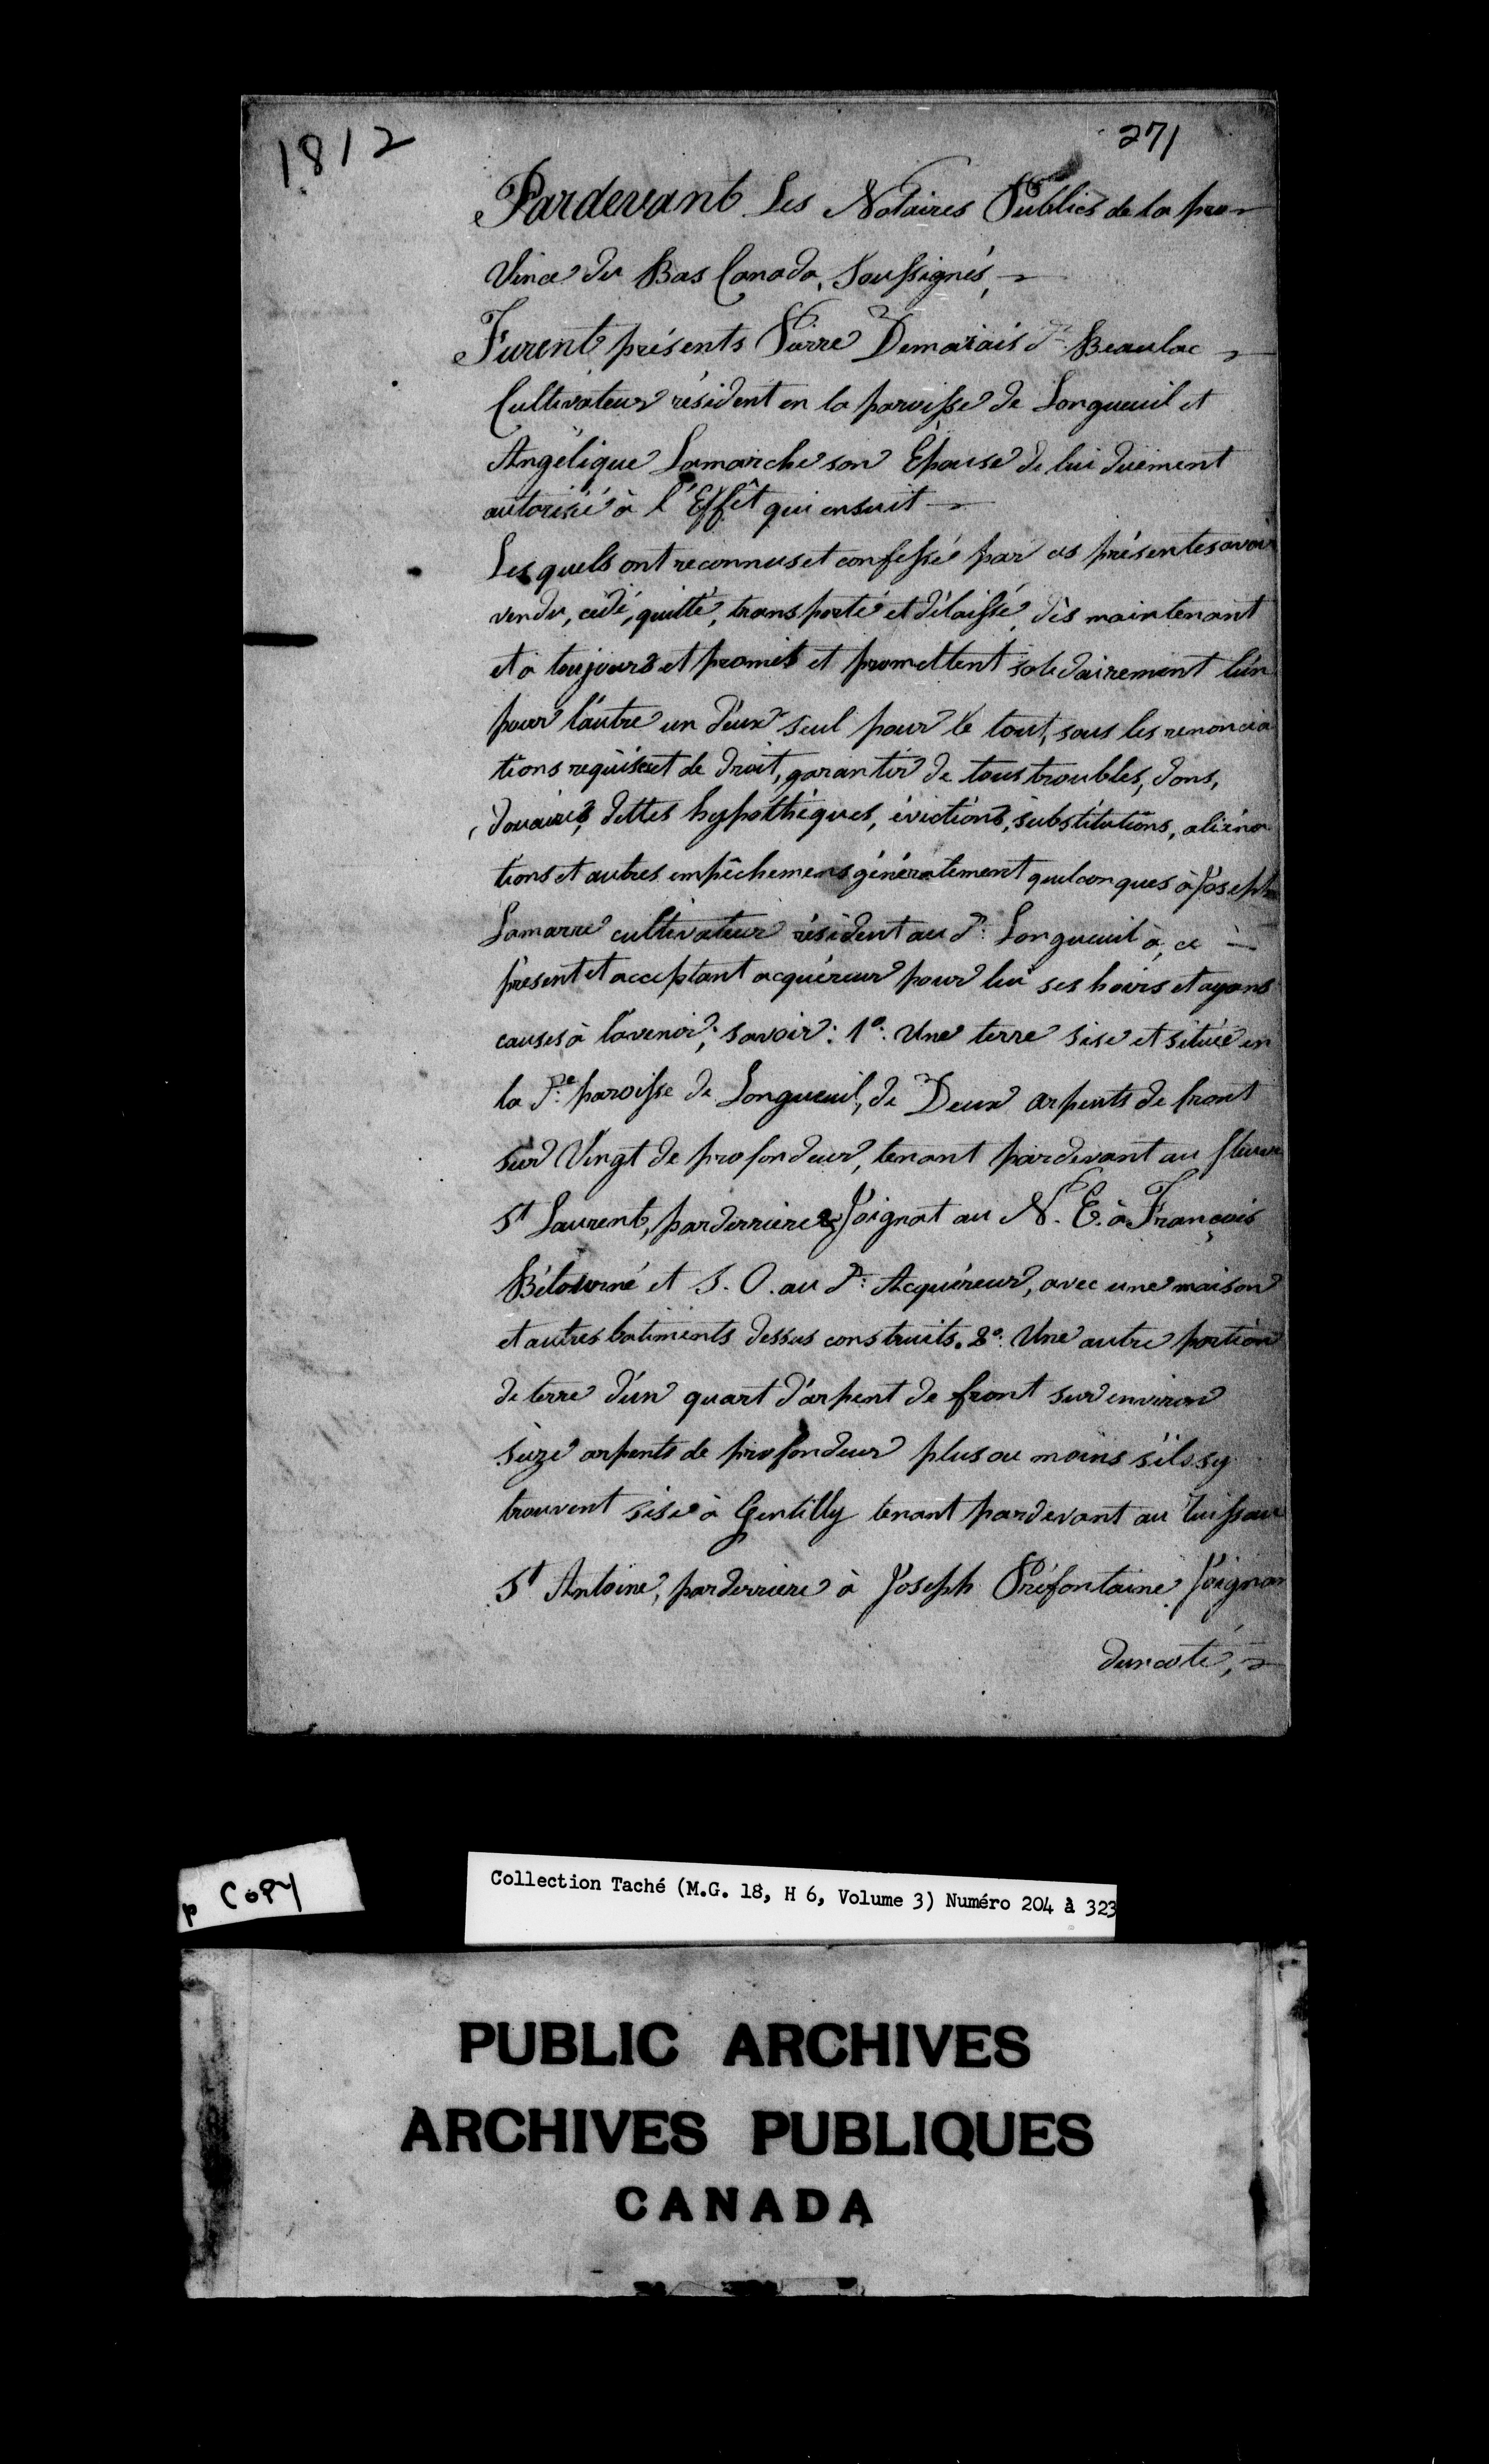 1812
271
Pardevant Les Notaires Publics de la pro
Vince du Bas Canada, Soussignés,
Furent présents Pierre Demarais dt. Beaulac
Cultivateur résident en la paroisse de Longueuil et
Angélique Lamarche son Epouse de lui duement
autorisée à l'Effêt qui ensuit
Lesquels ont reconnus et confessé par ces présentes avoir
vendu, cédé, quitté, transporté et délaissé, dès maintenant
et à toujours et promis et promettent solidairement l'un
pour l'autre un d'eux seul pour le tout, sous les renoncia
tions requises et de droit, garantir de tous troubles, dons,
douaires, dettes hypothèques, évictions, substitutions, aliéna
tions et autres empêchemens généralement quelconques à Joseph
Lamarre cultivateur résident au dt. Longueuil à ce
présent et acceptant acquéreur pour lui ses hoirs et ayans
causes à l'avenir; savoir: 1o. Une terre sise et située en
la de. paroisse de Longueuil, de Deux arpents de front
sur Vingt de profondeur, tenant pardevant au fleuve
St Laurent, parderriere & Joignat au N. E. à François
Bétourné et S. O. au dt. Acquéreur, avec une maison
et autres batiments dessus construits. 2o. Une autre portion
de terre d'un quart d'arpent de front sur environ
seize arpents de profondeur plus ou moins s'ils sy
trouvent sise à Gentilly tenant pardevant au ruisseau
St Antoine, parderriere à Joseph Préfontaine Joignan
dun coté,
p COPY
Collection Taché (M.G. 18, H 6, Volume 3) Numéro 204 à 323
PUBLIC ARCHIVES
ARCHIVES PUBLIQUES
CANADA